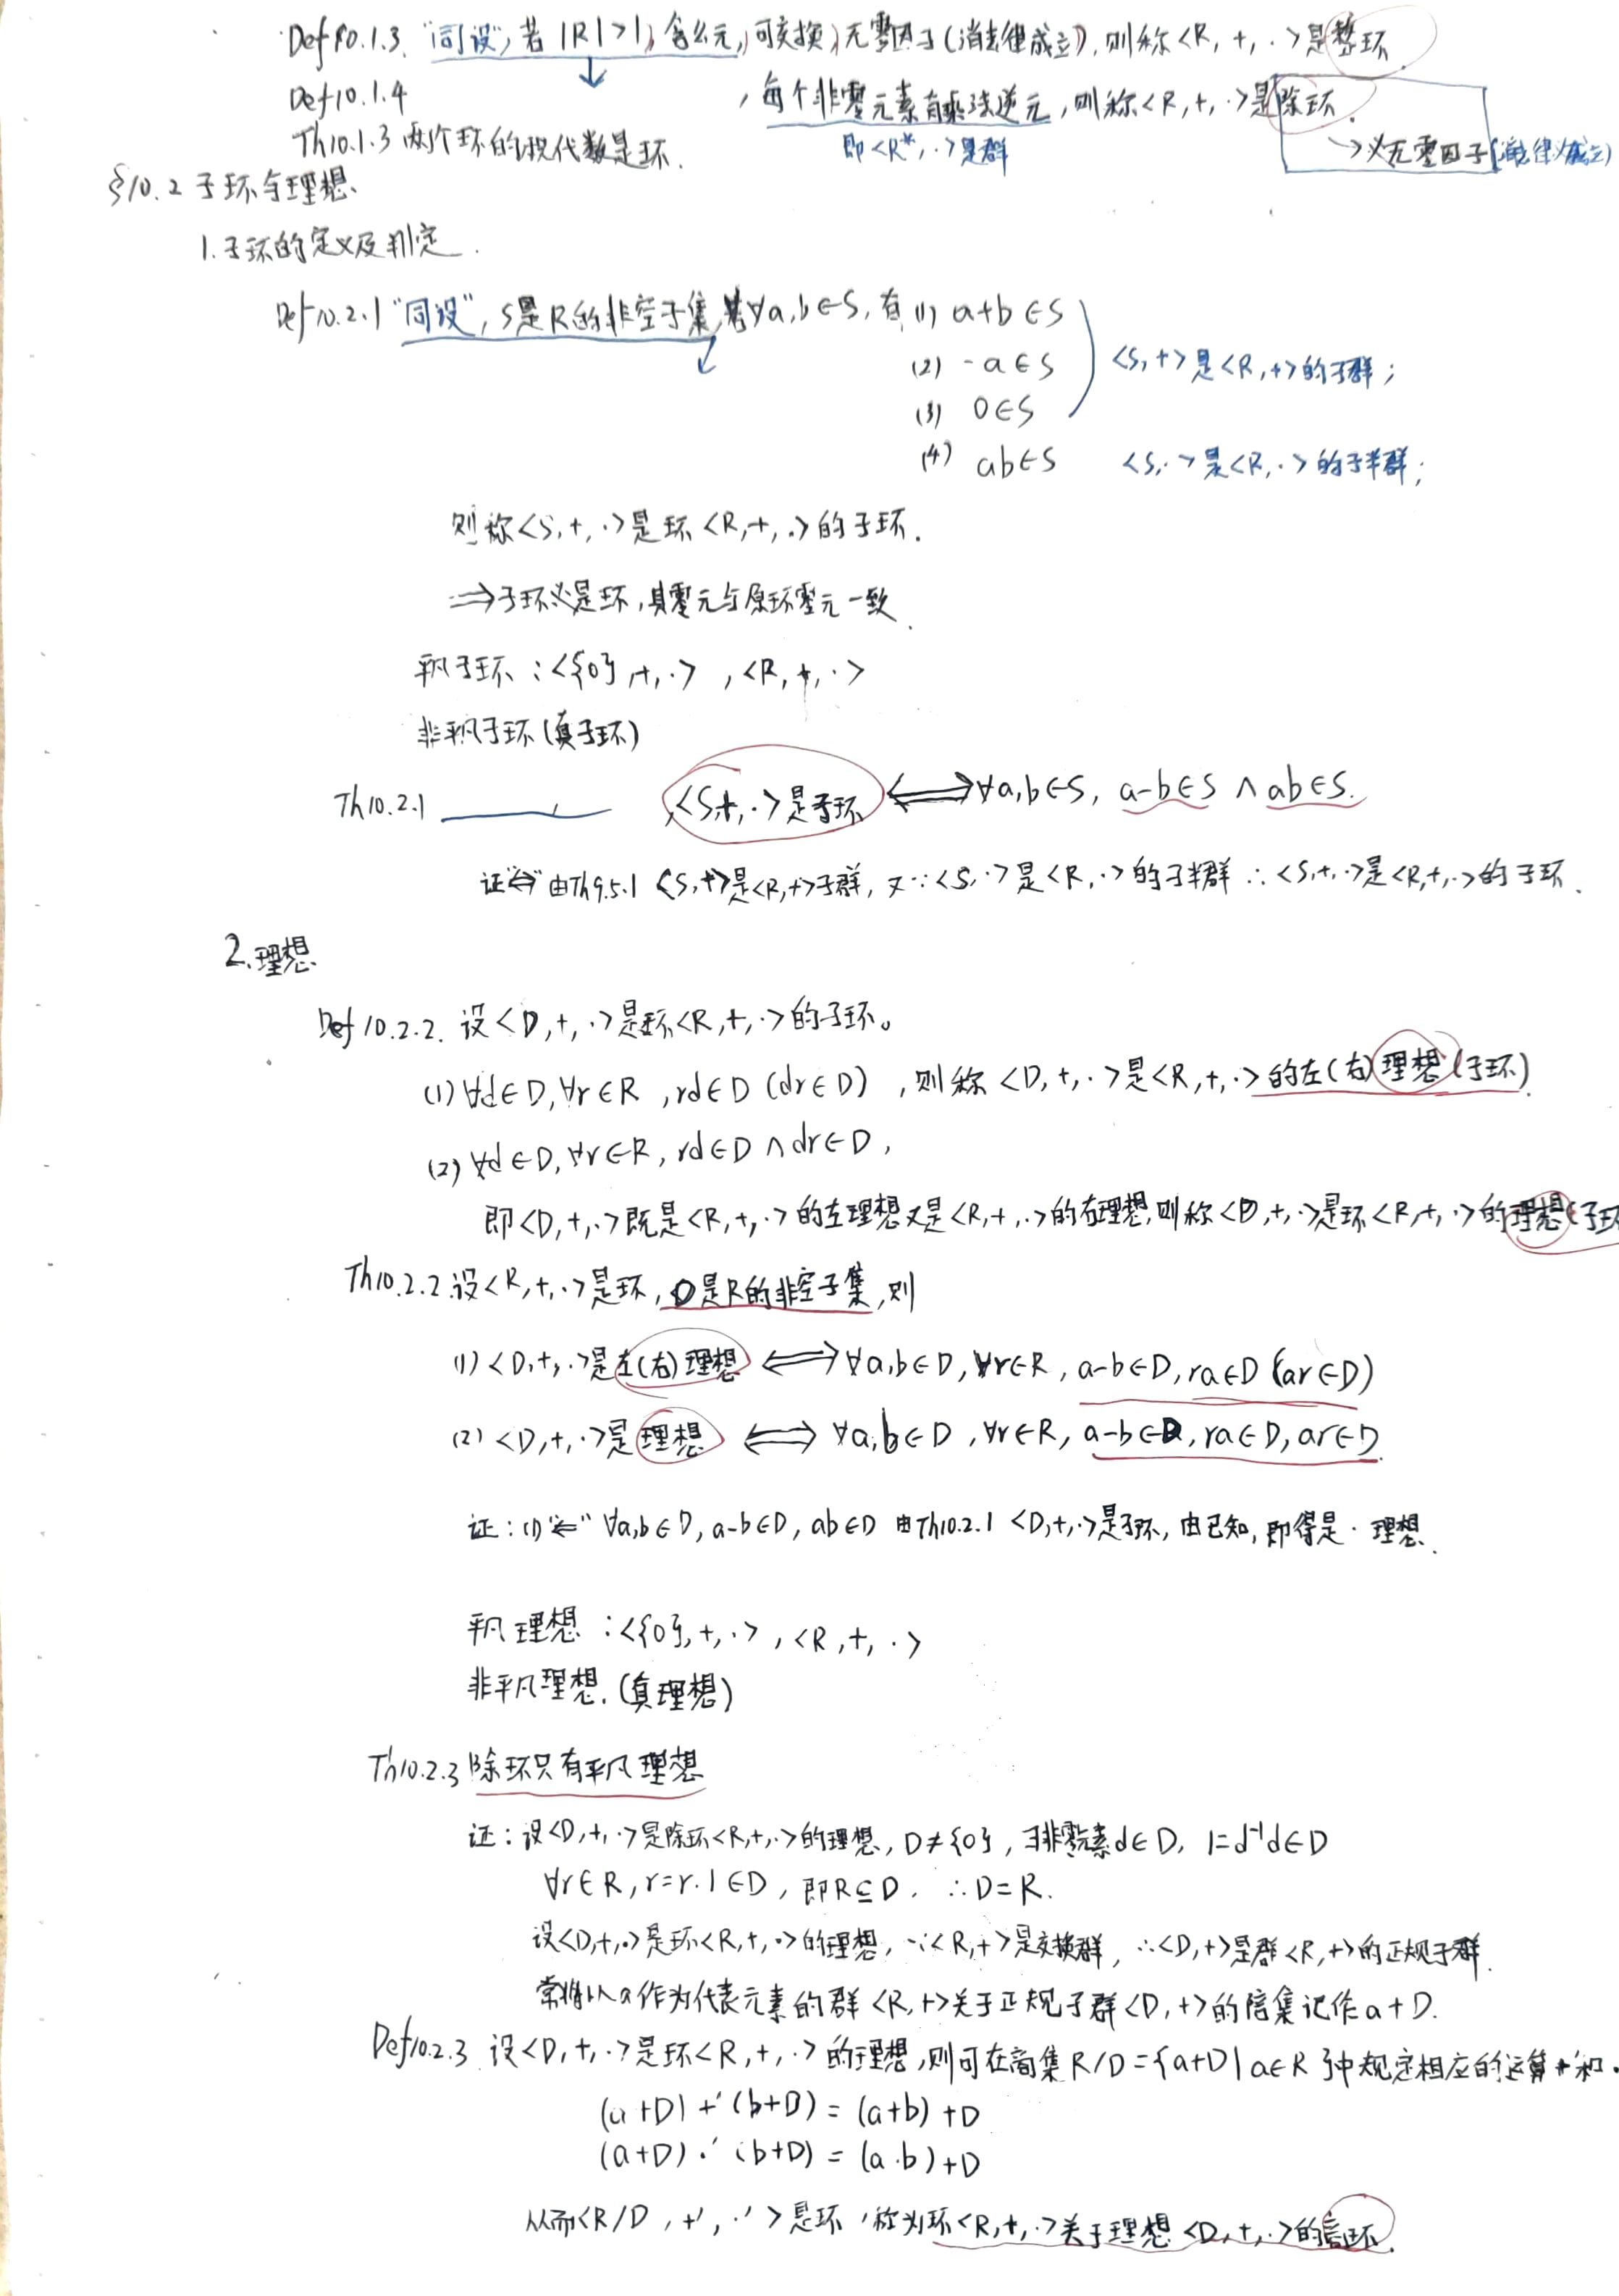 Def 10.1.3. "同设", 若 |R|>1, 含幺元, 可交换, 无零因子(消去律成立), 则称<R, +, ·>是整环.
Def10.1.4 , 每个非零元素有乘法逆元, 则称<R, +, ·>是除环.
即<R*, ·>是群 → 必无零因子(消去律必成立)
Th10.1.3 两个环的积代数是环.
§10.2 子环与理想.
1. 子环的定义及判定.
Def10.2.1 "同设", S是R的非空子集, 若∀a,b∈S, 有 (1) a+b∈S
(2) -a∈S <S, +>是<R, +>的子群;
(3) 0∈S
(4) ab∈S <S, ·>是<R, ·>的子半群;
则称<S, +, ·>是环<R, +, ·>的子环.
⇒子环必是环, 其零元与原环零元一致.
平凡子环: <{0}, +, ·>, <R, +, ·>
非平凡子环(真子环)
Th10.2.1 , <S,+, ·>是子环 ⟺ ∀a,b∈S, a-b∈S ∧ ab∈S.
证"⇐" 由Th9.5.1 <S, +>是<R, +>子群, 又∵<S, ·>是<R, ·>的子半群 ∴<S, +, ·>是<R, +, ·>的子环.
2. 理想.
Def 10.2.2. 设<D, +, ·>是环<R, +, ·>的子环。
(1) ∀d∈D, ∀r∈R, rd∈D (dr∈D), 则称<D, +, ·>是<R, +, ·>的左(右)理想(子环).
(2) ∀d∈D, ∀r∈R, rd∈D ∧ dr∈D,
即<D, +, ·>既是<R, +, ·>的左理想又是<R, +, ·>的右理想, 则称<D, +, ·>是环<R, +, ·>的理想(子环
Th10.2.2 设<R, +, ·>是环, D是R的非空子集, 则
(1) <D, +, ·>是左(右)理想 ⟺ ∀a,b∈D, ∀r∈R, a-b∈D, ra∈D (ar∈D)
(2) <D, +, ·>是理想 ⟺ ∀a,b∈D, ∀r∈R, a-b∈D, ra∈D, ar∈D.
证: (1)"⇐" ∀a,b∈D, a-b∈D, ab∈D 由Th10.2.1 <D, +, ·>是子环, 由已知, 即得是·理想.
平凡理想: <{0}, +, ·>, <R, +, ·>
非平凡理想. (真理想)
Th10.2.3 除环只有平凡理想
证: 设<D, +, ·>是除环<R, +, ·>的理想, D≠{0}, ∃非零元素d∈D, 1=d⁻¹d∈D
∀r∈R, r=r·1∈D, 即R⊆D, ∴D=R.
设<D, +, ·>是环<R, +, ·>的理想, ∵<R, +>是交换群, ∴<D, +>是群<R, +>的正规子群.
常将以a作为代表元素的群<R, +>关于正规子群<D, +>的陪集记作a+D.
Def10.2.3 设<D, +, ·>是环<R, +, ·>的理想, 则可在商集R/D={a+D|a∈R}中规定相应的运算+'和·
(a+D) +' (b+D) = (a+b)+D
(a+D) ·' (b+D) = (a·b)+D
从而<R/D, +', ·'>是环, 称为环<R, +, ·>关于理想<D, +, ·>的商环.